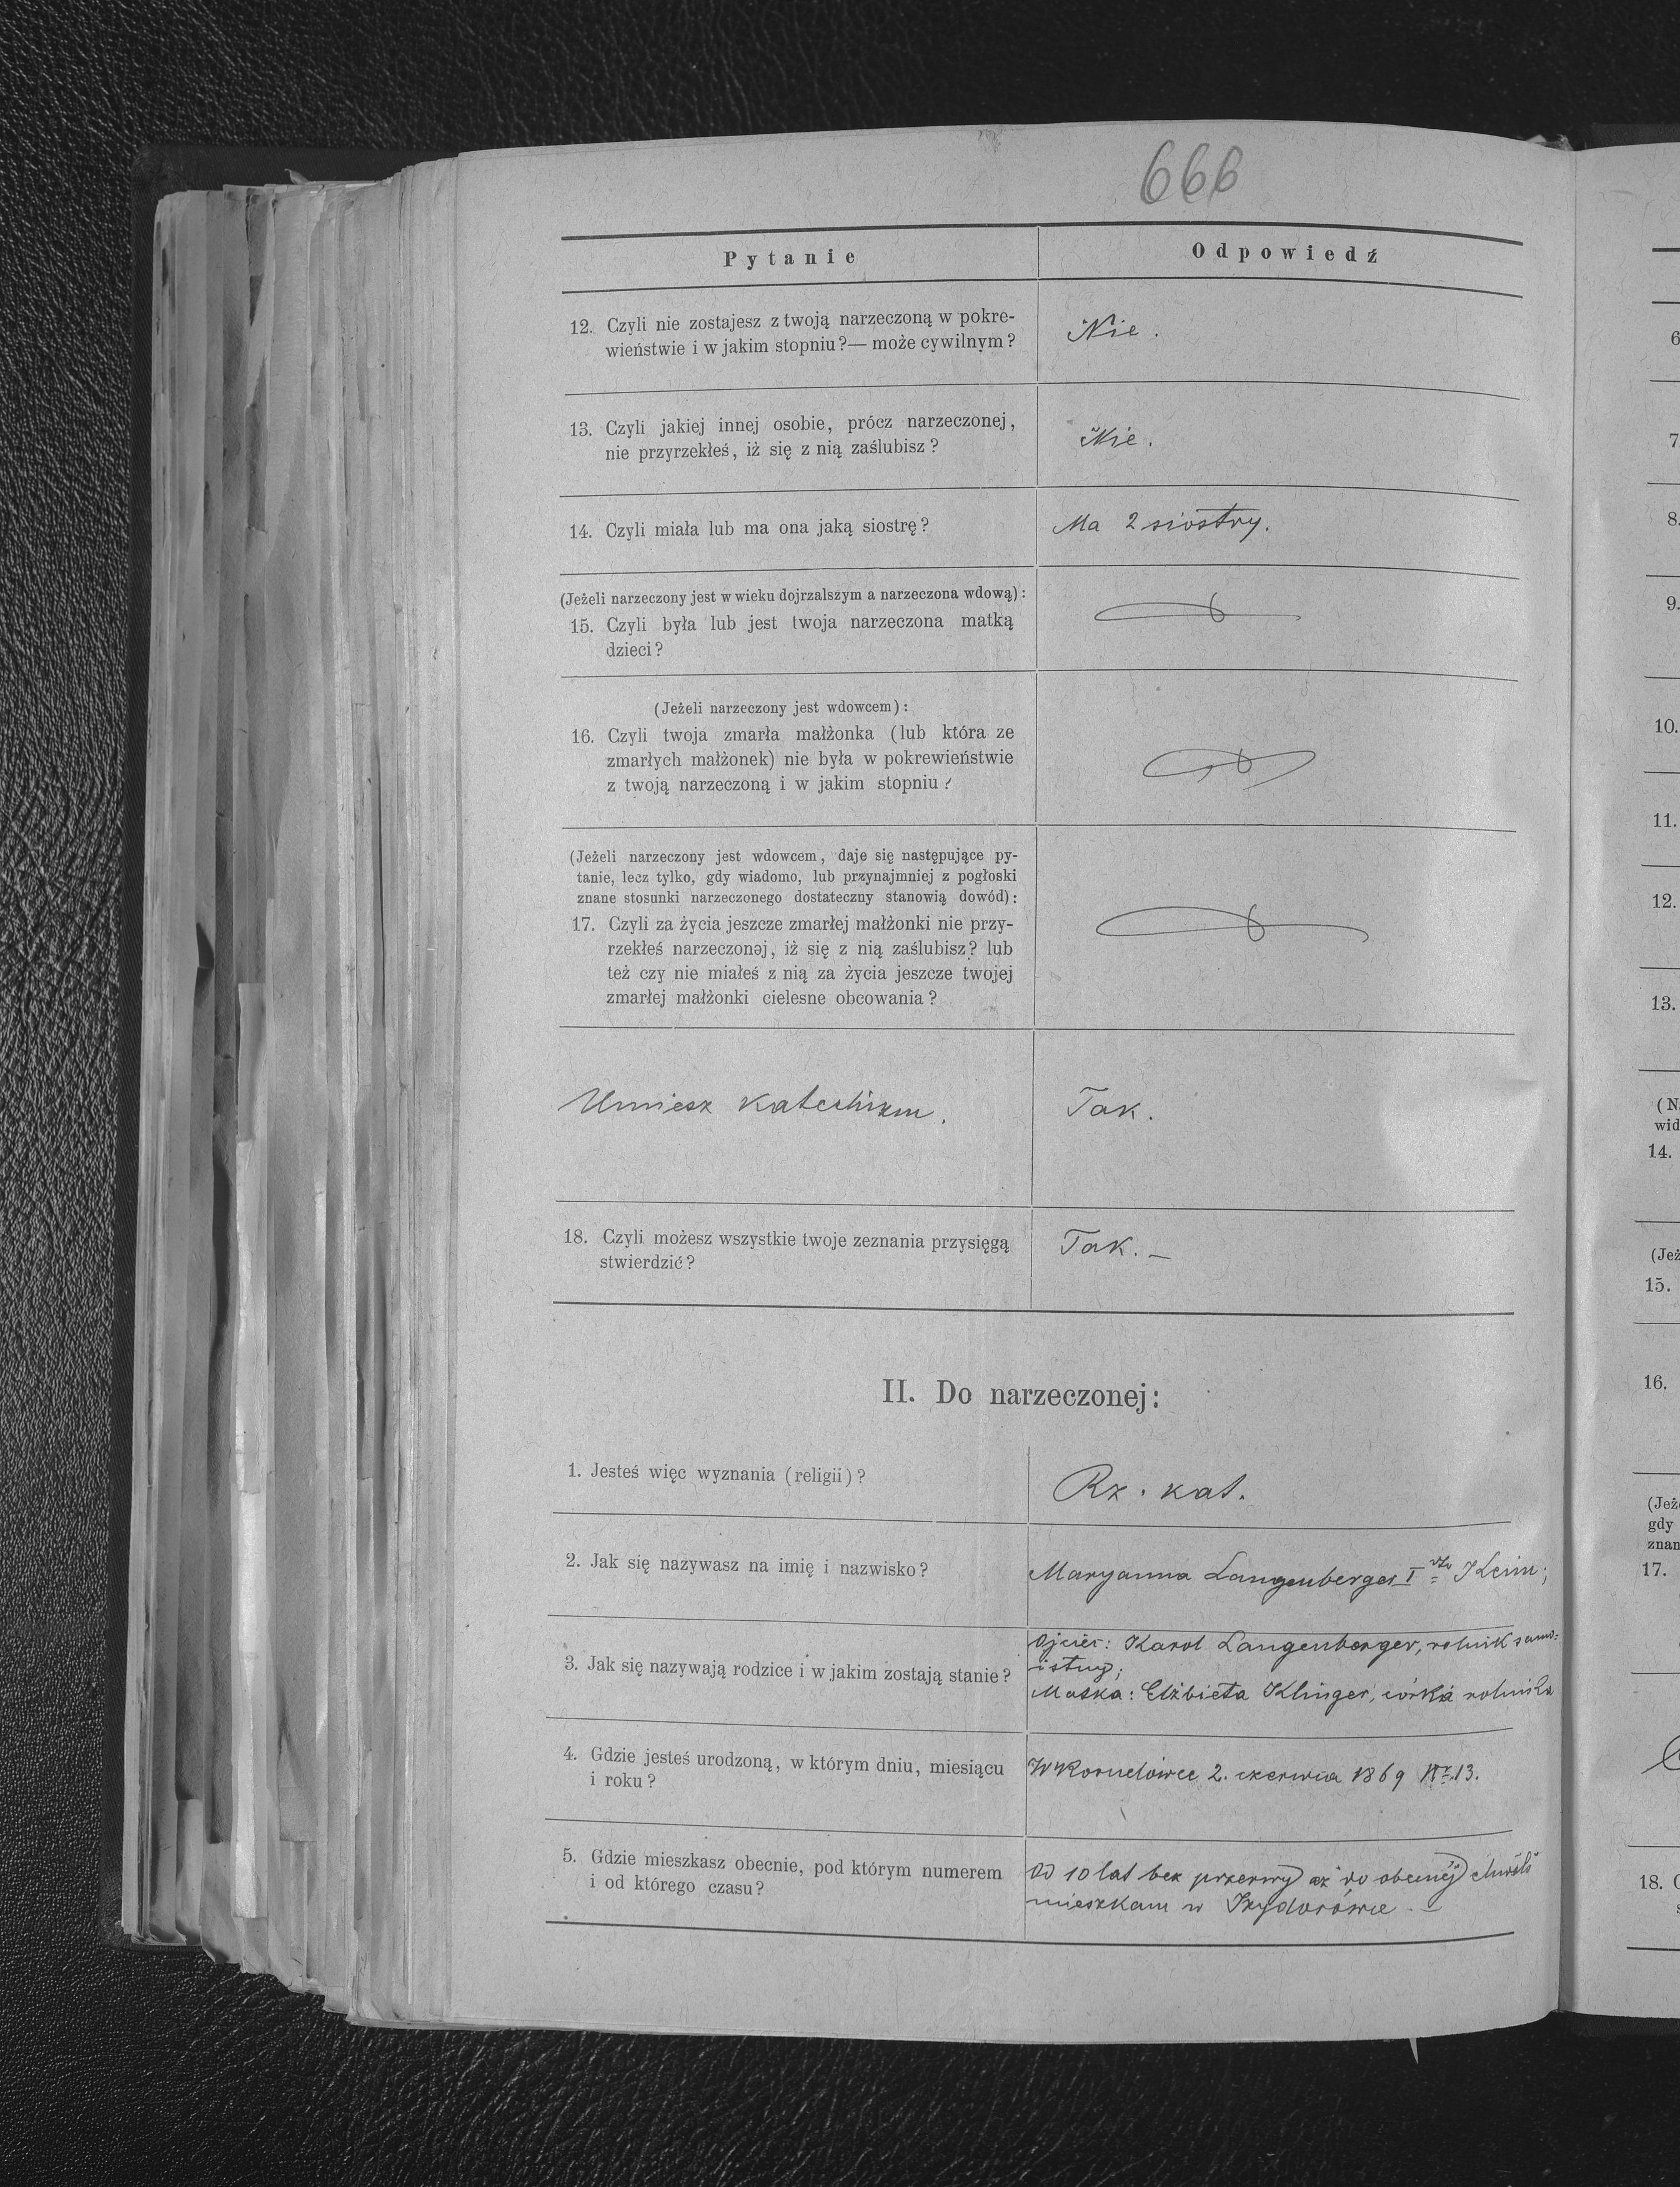 666
Pytanie
Odpowiedź
12. Czyli nie zostajesz z twoją narzeczoną w pokre-
wieństwie i w jakim stopniu?— może cywilnym?
Nie.
13. Czyli jakiej innej osobie, prócz narzeczonej,
nie przyrzekłeś, iż się z nią zaślubisz?
Nie.
14. Czyli miała lub ma ona jaką siostrę?
Ma 2 siostry.
(Jeżeli narzeczony jest w wieku dojrzalszym a narzeczona wdową):
15. Czyli była lub jest twoja narzeczona matką
dzieci?
(Jeżeli narzeczony jest wdowcem):
16. Czyli twoja zmarła małżonka (lub która ze
zmarłych małżonek) nie była w pokrewieństwie
z twoją narzeczoną i w jakim stopniu?
(Jeżeli narzeczony jest wdowcem, daje się następujące py-
tanie, lecz tylko, gdy wiadomo, lub przynajmniej z pogłoski
znane stosunki narzeczonego dostateczny stanowią dowód):
17. Czyli za życia jeszcze zmarłej małżonki nie przy-
rzekłeś narzeczonej, iż się z nią zaślubisz? lub
też czy nie miałeś z nią za życia jeszcze twojej
zmarłej małżonki cielesne obcowania?
Umiesz katechizm.
Tak.
18. Czyli możesz wszystkie twoje zeznania przysięgą
stwierdzić?
Tak. —
II. Do narzeczonej:
1. Jesteś więc wyznania (religii)?
Rz. kat.
2. Jak się nazywasz na imię i nazwisko?
Maryanna Langenberger I vto Kleim;
3. Jak się nazywają rodzice i w jakim zostają stanie?
Ojciec: Karol Langenberger, rolnik samo-
istny;
Matka: Elżbieta Klinger, córka rolnika
4. Gdzie jesteś urodzoną, w którym dniu, miesiącu
i roku?
W Kornelówce 2. czerwca 1869 Nr. 13.
5. Gdzie mieszkasz obecnie, pod którym numerem
i od którego czasu?
Od 10 lat bez przerwy aż do obecnéj chwili
mieszkam w Izydorówce —
6
7
8.
9.
10.
11.
12.
13.
(N
wid
14.
(Jeż
15.
16.
(Jeż
gdy
znan
17.
18.